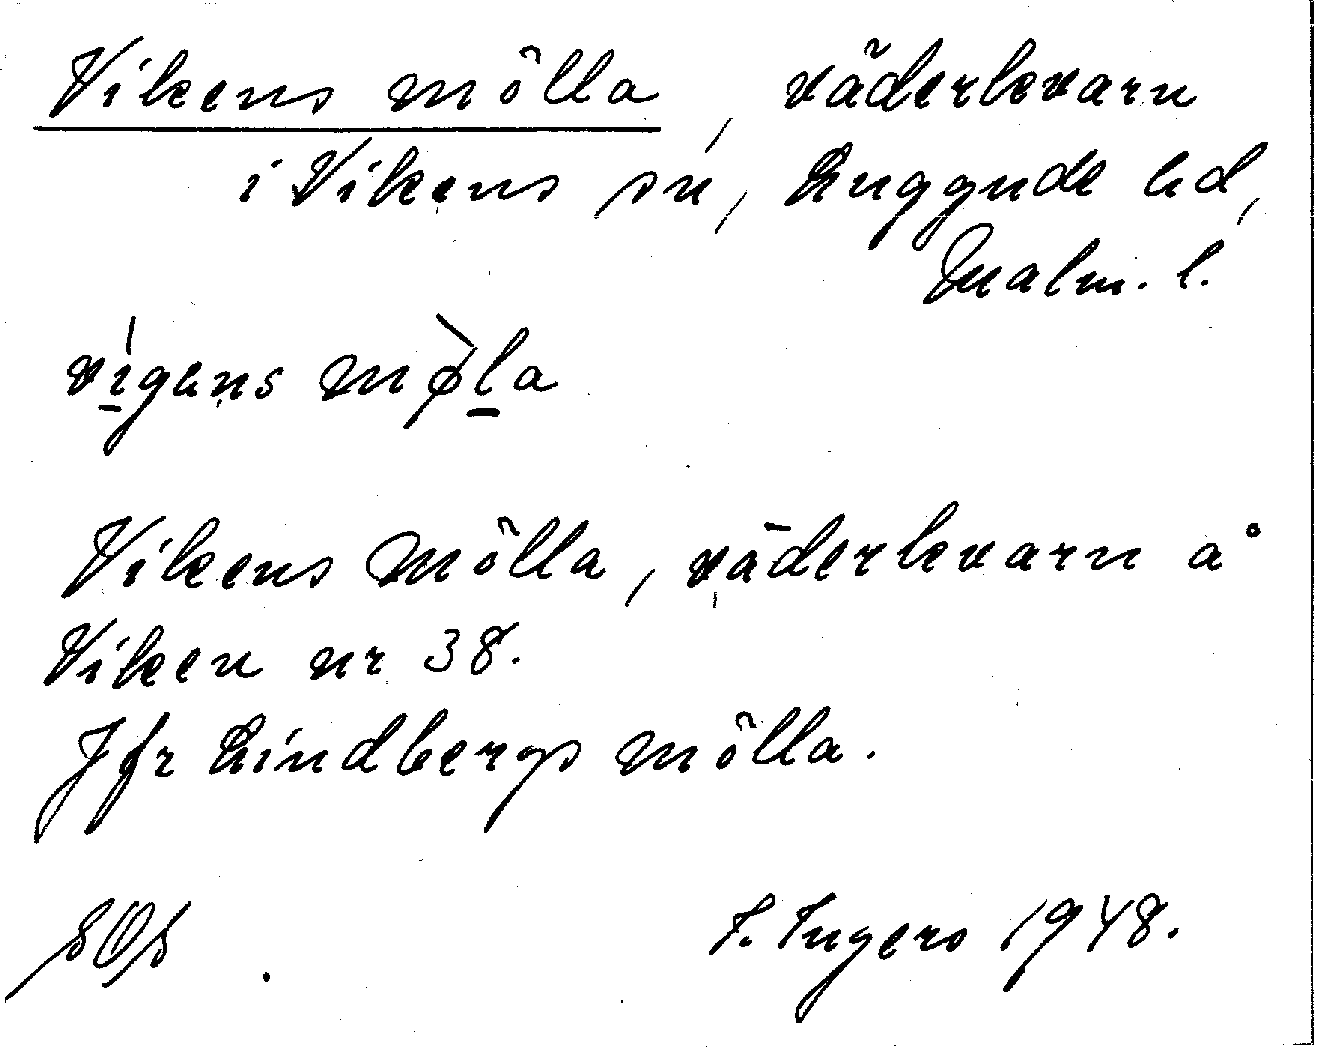 Vikens mölla, väderkvarn
i Vikens sn, Luggude hd,
Malm. l.
vígens mø̀la
Vikens Mölla, väderkvarn å
Viken nr 38.
Jfr Lindbergs mölla.
I. Ingers 1948.